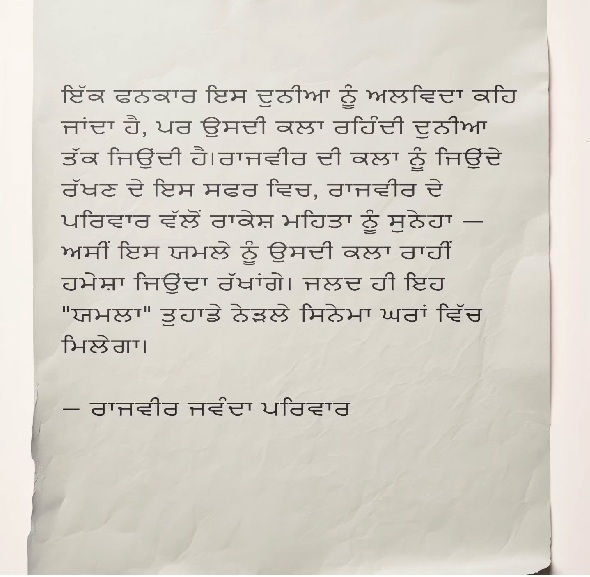 ਇੱਕ ਫਨਕਾਰ ਇਸ ਦੁਨੀਆ ਨੂੰ ਅਲਵਿਦਾ ਕਹਿ
ਜਾਂਦਾ ਹੈ, ਪਰ ਉਸਦੀ ਕਲਾ ਰਹਿੰਦੀ ਦੁਨੀਆ
ਤੱਕ ਜਿਉਂਦੀ ਹੈ।ਰਾਜਵੀਰ ਦੀ ਕਲਾ ਨੂੰ ਜਿਉਂਦੇ
ਰੱਖਣ ਦੇ ਇਸ ਸਫਰ ਵਿਚ, ਰਾਜਵੀਰ ਦੇ
ਪਰਿਵਾਰ ਵੱਲੋਂ ਰਾਕੇਸ਼ ਮਹਿਤਾ ਨੂੰ ਸੁਨੇਹਾ —
ਅਸੀਂ ਇਸ ਯਮਲੇ ਨੂੰ ਉਸਦੀ ਕਲਾ ਰਾਹੀਂ
ਹਮੇਸ਼ਾ ਜਿਉਂਦਾ ਰੱਖਾਂਗੇ। ਜਲਦ ਹੀ ਇਹ
"ਯਮਲਾ" ਤੁਹਾਡੇ ਨੇੜਲੇ ਸਿਨੇਮਾ ਘਰਾਂ ਵਿੱਚ
ਮਿਲੇਗਾ।
— ਰਾਜਵੀਰ ਜਵੰਦਾ ਪਰਿਵਾਰ